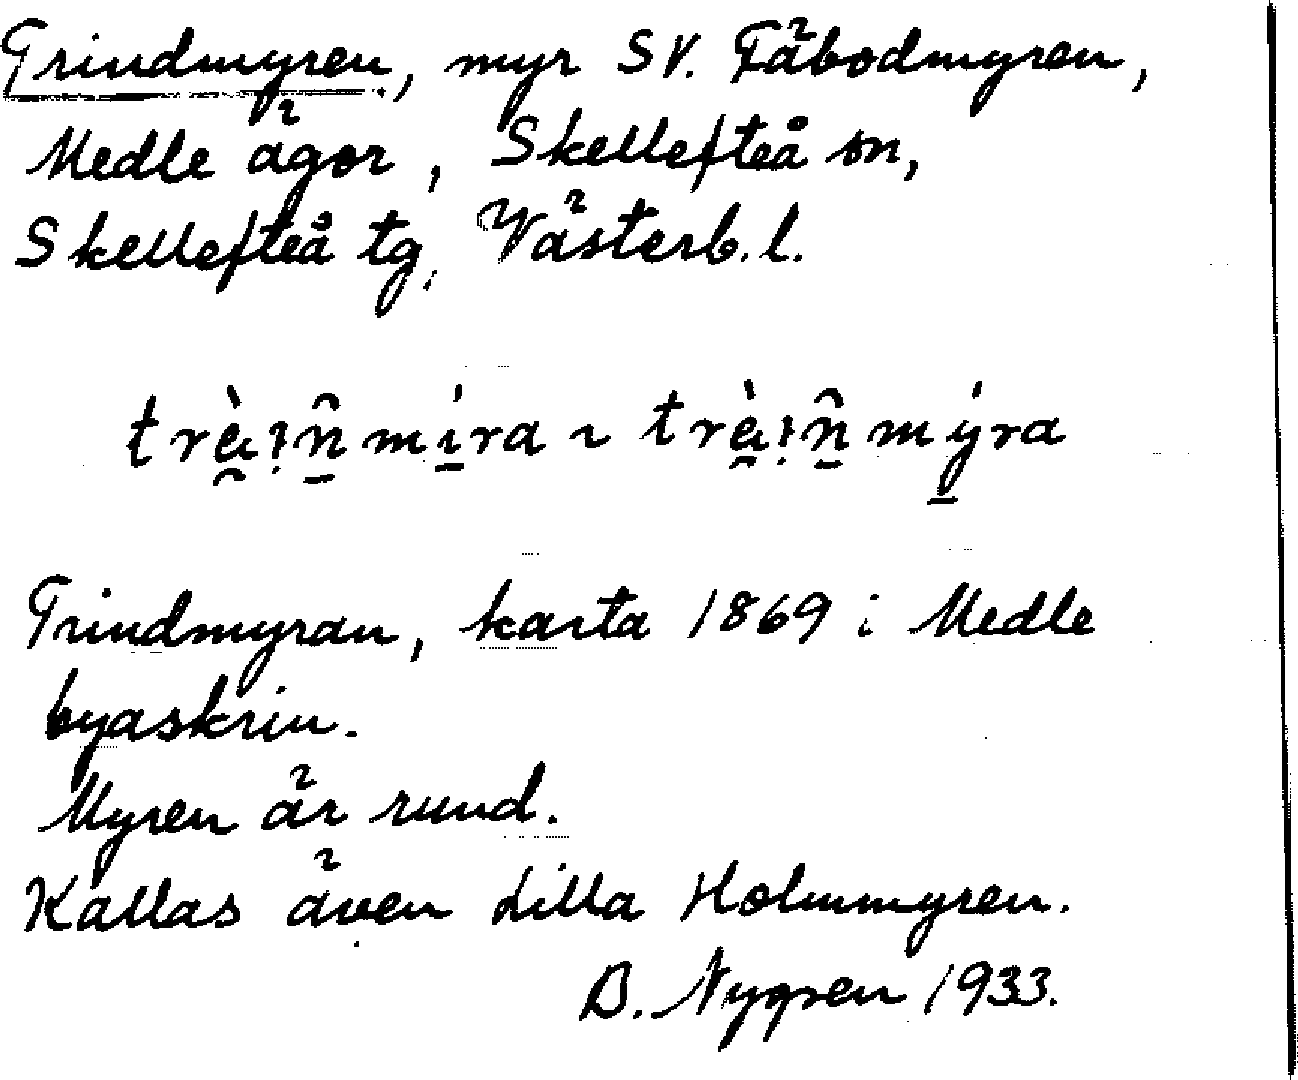 Trindmyren, myr SV. Fäbodmyren,
Medle ägor, Skellefteå sn,
Skellefteå tg, Västerb. l.
Trindmyran, karta 1869 i Medle
byaskrin.
Myren är rund.
Kallas även Lilla Holmmyren.
B. Nygren 1933.